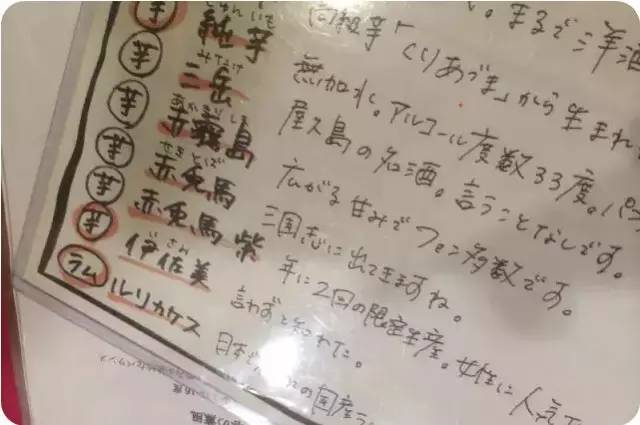 芋 純芋 じゅんいも 高級芋「くりあづま」から生まれ
芋 三岳 みたけ 無加水。アルコール度数33度。パ
芋 赤霧島 あかきりしま 屋久島の名酒。言うことなしです。
芋 赤兎馬 せきとば 広がる甘みでファン多数です。
芋 赤兎馬 紫 三国志に出てきますね。
芋 伊佐美 いさみ 年に2回の限定生産。女性に人気で
ラム ルリカケス 言わずと知れた。
日本で の国産ラ
。まるで洋酒